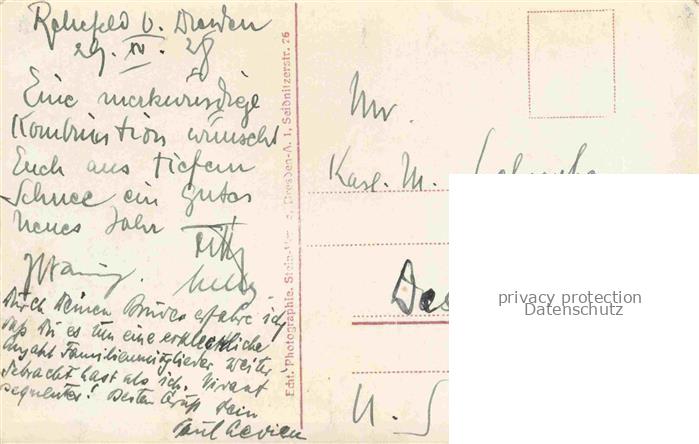 Rehefeld b. Dresden
29. XII. 28
Eine merkwürdige
Kombination wünscht
Euch aus tiefem
Schnee ein gutes
neues Jahr
Durch Deinen Bruder erfahre ich
daß Du es um eine erkleckliche
Anzahl Familienmitglieder weiter
gebracht hast als ich. Vivant
sequentes! Besten Gruß Dein
Paul
Echt. Photographie. Dresden-A. 1, Seidnitzerstr. 26
Mr.
Karl. M.
U. S
privacy protection
Datenschutz